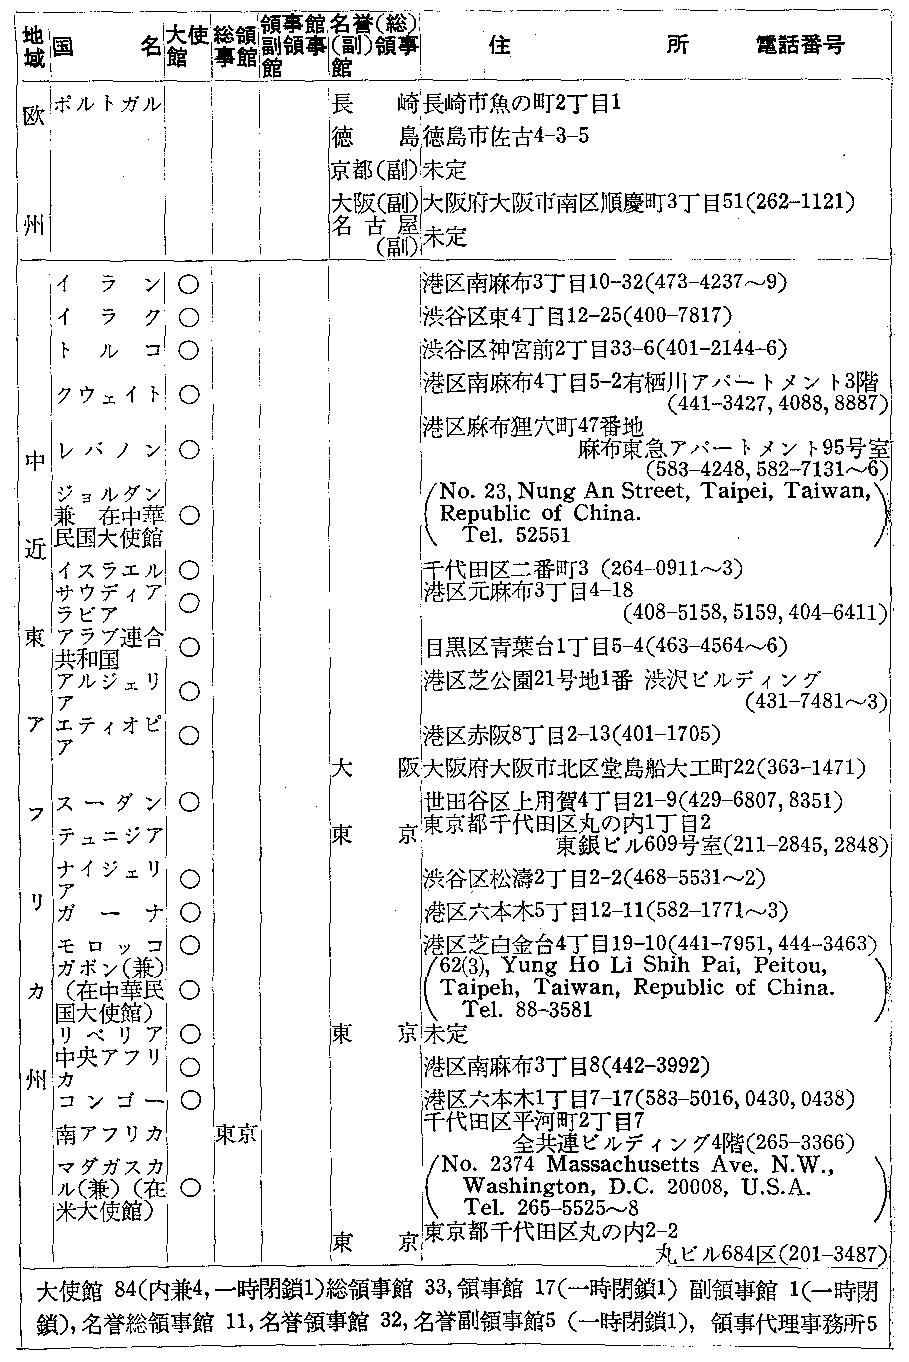 地域 国名 大使館 総領事館 領事館副領事館 名誉(総)(副)領事館 住所 電話番号
欧州
ポルトガル 長崎 長崎市魚の町2丁目1
徳島 徳島市佐古4-3-5
京都(副) 未定
大阪(副) 大阪府大阪市南区順慶町3丁目51(262-1121)
名古屋(副) 未定
中近東アフリカ州
イラン ○ 港区南麻布3丁目10-32(473-4237～9)
イラク ○ 渋谷区東4丁目12-25(400-7817)
トルコ ○ 渋谷区神宮前2丁目33-6(401-2144-6)
クウェイト ○ 港区南麻布4丁目5-2有栖川アパートメント3階
(441-3427, 4088, 8887)
レバノン ○ 港区麻布狸穴町47番地
麻布東急アパートメント95号室
(583-4248, 582-7131～6)
ジョルダン
兼 在中華
民国大使館 ○ (No. 23, Nung An Street, Taipei, Taiwan,
Republic of China.
Tel. 52551)
イスラエル ○ 千代田区二番町3 (264-0911～3)
サウディア
ラビア ○ 港区元麻布3丁目4-18
(408-5158, 5159, 404-6411)
アラブ連合
共和国 ○ 目黒区青葉台1丁目5-4(463-4564～6)
アルジェリ
ア ○ 港区芝公園21号地1番 渋沢ビルディング
(431-7481～3)
エティオピ
ア ○ 港区赤阪8丁目2-13(401-1705)
大阪 大阪府大阪市北区堂島船大工町22(363-1471)
スーダン ○ 世田谷区上用賀4丁目21-9(429-6807, 8351)
テュニジア 東京 東京都千代田区丸の内1丁目2
東銀ビル609号室(211-2845, 2848)
ナイジェリ
ア ○ 渋谷区松濤2丁目2-2(468-5531～2)
ガーナ ○ 港区六本木5丁目12-11(582-1771～3)
モロッコ ○ 港区芝白金台4丁目19-10(441-7951, 444-3463)
ガボン(兼)
(在中華民
国大使館) ○ (62(3), Yung Ho Li Shih Pai, Peitou,
Taipeh, Taiwan, Republic of China.
Tel. 88-3581)
リベリア ○ 東京 未定
中央アフリ
カ ○ 港区南麻布3丁目8(442-3992)
コンゴー ○ 港区六本木1丁目7-17(583-5016, 0430, 0438)
南アフリカ 東京 千代田区平河町2丁目7
全共連ビルディング4階(265-3366)
マダガスカ
ル(兼) (在
米大使館) ○ (No. 2374 Massachusetts Ave. N.W.,
Washington, D.C. 20008, U.S.A.
Tel. 265-5525～8)
東京 東京都千代田区丸の内2-2
丸ビル684区(201-3487)
大使館 84(内兼4, 一時閉鎖1)総領事館 33, 領事館 17(一時閉鎖1) 副領事館 1(一時閉
鎖), 名誉総領事館 11, 名誉領事館 32, 名誉副領事館5 (一時閉鎖1), 領事代理事務所5